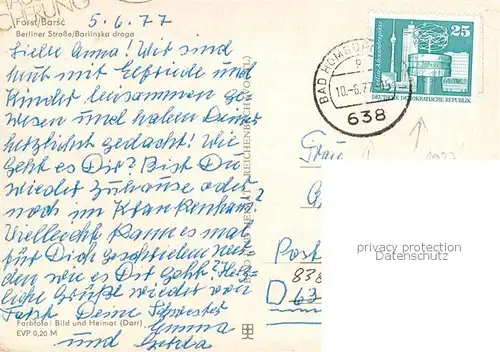 5.6.77
Forst/Baršć
Berliner Straße/Barlinska droga
Liebe Anna! Wir sind
heut mit Elfriede und
Kinder beisammen ge-
wesen und haben Deiner
herzlichst gedacht! Wie
geht es Dir? Bist Du
wieder zuhause oder
noch im Krankenhaus?
Vielleicht kann es mal
für Dich geschrieben wer-
den wie es Dir geht? Herz-
liche Grüße wieder von
Forst Deine Schwester
Emma
und Gerda
Farbfoto: Bild und Heimat (Darr)
EVP 0,20 M
BILD UND HEIMAT REICHENBACH (VOGTL)
BAD HOMBURG
10.-6.77
638
25
DEUTSCHE DEMOKRATISCHE REPUBLIK
Frau
Post
838
D 63
privacy protection
Datenschutz